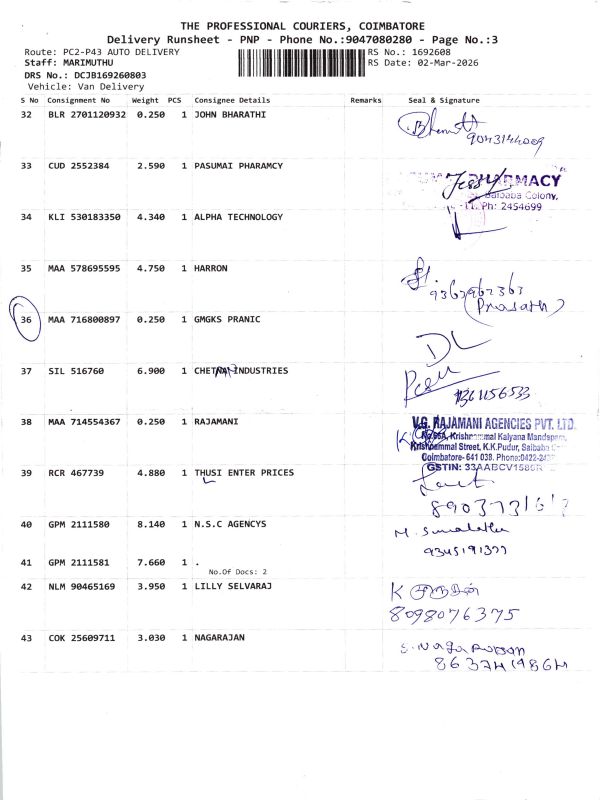 THE PROFESSIONAL COURIERS, COIMBATORE
Delivery Runsheet - PNP - Phone No.:9047080280 - Page No.:3
Route: PC2-P43 AUTO DELIVERY RS No.: 1692608
Staff: MARIMUTHU RS Date: 02-Mar-2026
DRS No.: DCJB169260803
Vehicle: Van Delivery
S No Consignment No Weight PCS Consignee Details Remarks Seal & Signature
32 BLR 2701120932 0.250 1 JOHN BHARATHI
9043144009
33 CUD 2552384 2.590 1 PASUMAI PHARAMCY
PHARMACY
Saibaba Colony,
Ph: 2454699
34 KLI 530183350 4.340 1 ALPHA TECHNOLOGY
35 MAA 578695595 4.750 1 HARRON
9362962363
(Prasath)
36 MAA 716800897 0.250 1 GMGKS PRANIC
DL
37 SIL 516760 6.900 1 INDUSTRIES
38 MAA 714554367 0.250 1 RAJAMANI
V.G. RAJAMANI AGENCIES PVT. LTD.
Krishnammal Kalyana Mandapam,
Krishnammal Street, K.K.Pudur, Saibaba
Coimbatore- 641 038. Phone:0422-243
GSTIN: 33AABCV1586R
39 RCR 467739 4.880 1 THUSI ENTER PRICES
40 GPM 2111580 8.140 1 N.S.C AGENCYS
9345191377
41 GPM 2111581 7.660 1 .
No.Of Docs: 2
42 NLM 90465169 3.950 1 LILLY SELVARAJ
K
8098076375
43 COK 25609711 3.030 1 NAGARAJAN
S. Nagarajan